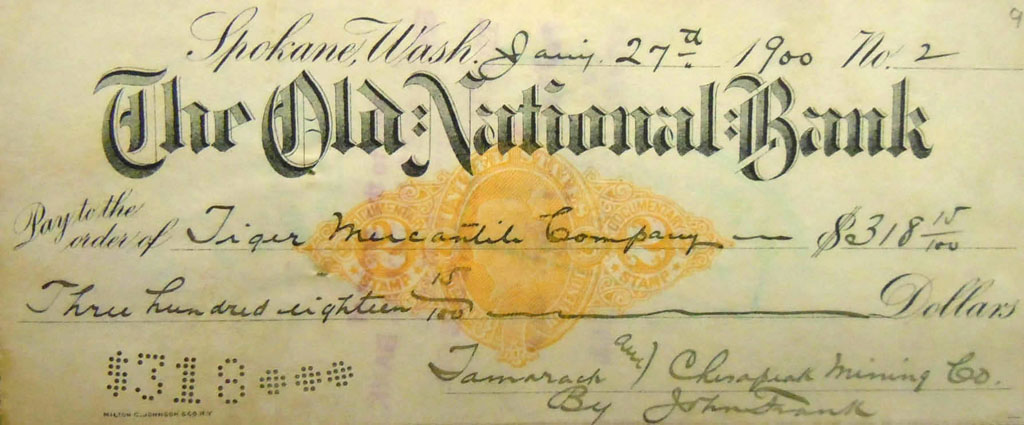 9
Spokane, Wash. Jany. 27th 1900 No. 2
The Old National Bank
Pay to the order of Tiger Mercantile Company $318 15/100
Three hundred eighteen 15/100 Dollars
DOCUMENTARY
2 2
STAMP STAMP
$318***
Tamarack and Chesapeak Mining Co.
By John Frank